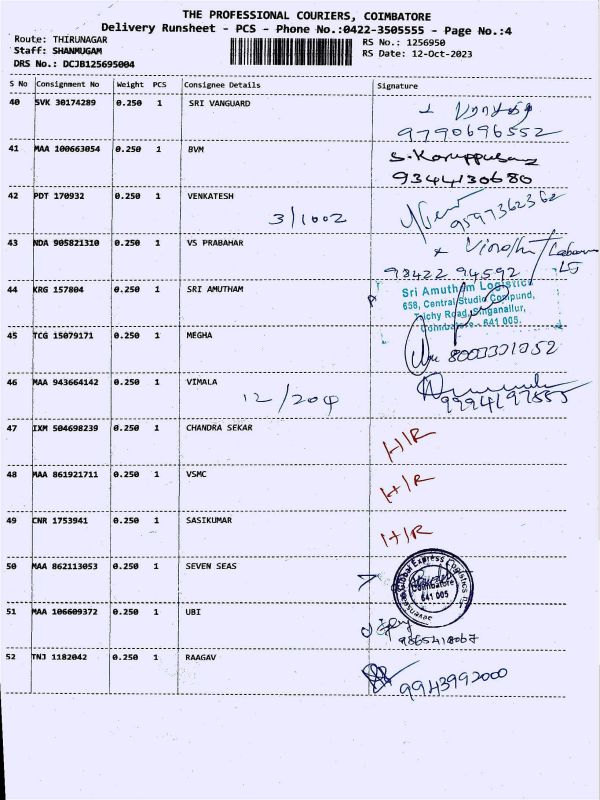 THE PROFESSIONAL COURIERS, COIMBATORE
Delivery Runsheet - PCS - Phone No.:0422-3505555 - Page No.:4
Route: THIRUNAGAR
RS No.: 1256950
Staff: SHANMUGAM
RS Date: 12-Oct-2023
DRS No.: DCJB125695004
S No Consignment No Weight PCS Consignee Details Signature
40 SVK 30174289 0.250 1 SRI VANGUARD
9790696552
41 MAA 100663054 0.250 1 BVM S. Karuppusamy
9344130680
42 PDT 170932 0.250 1 VENKATESH
3/1002 9597362362
43 NDA 905821310 0.250 1 VS PRABAHAR
98422 94592
44 KRG 157804 0.250 1 SRI AMUTHAM
Sri Amutham Logistics
658, Central Studio Compund,
Trichy Road, Singanallur,
Coimbatore - 641 005.
45 TCG 15079171 0.250 1 MEGHA
46 MAA 943664142 0.250 1 VIMALA
12/204
47 IXM 504698239 0.250 1 CHANDRA SEKAR H/R
48 MAA 861921711 0.250 1 VSMC H/R
49 CNR 1753941 0.250 1 SASIKUMAR H/R
50 MAA 862113053 0.250 1 SEVEN SEAS
Global Express Logistics
Coimbatore
641 005
51 MAA 106609372 0.250 1 UBI
9865418067
52 TNJ 1182042 0.250 1 RAAGAV
9943992000